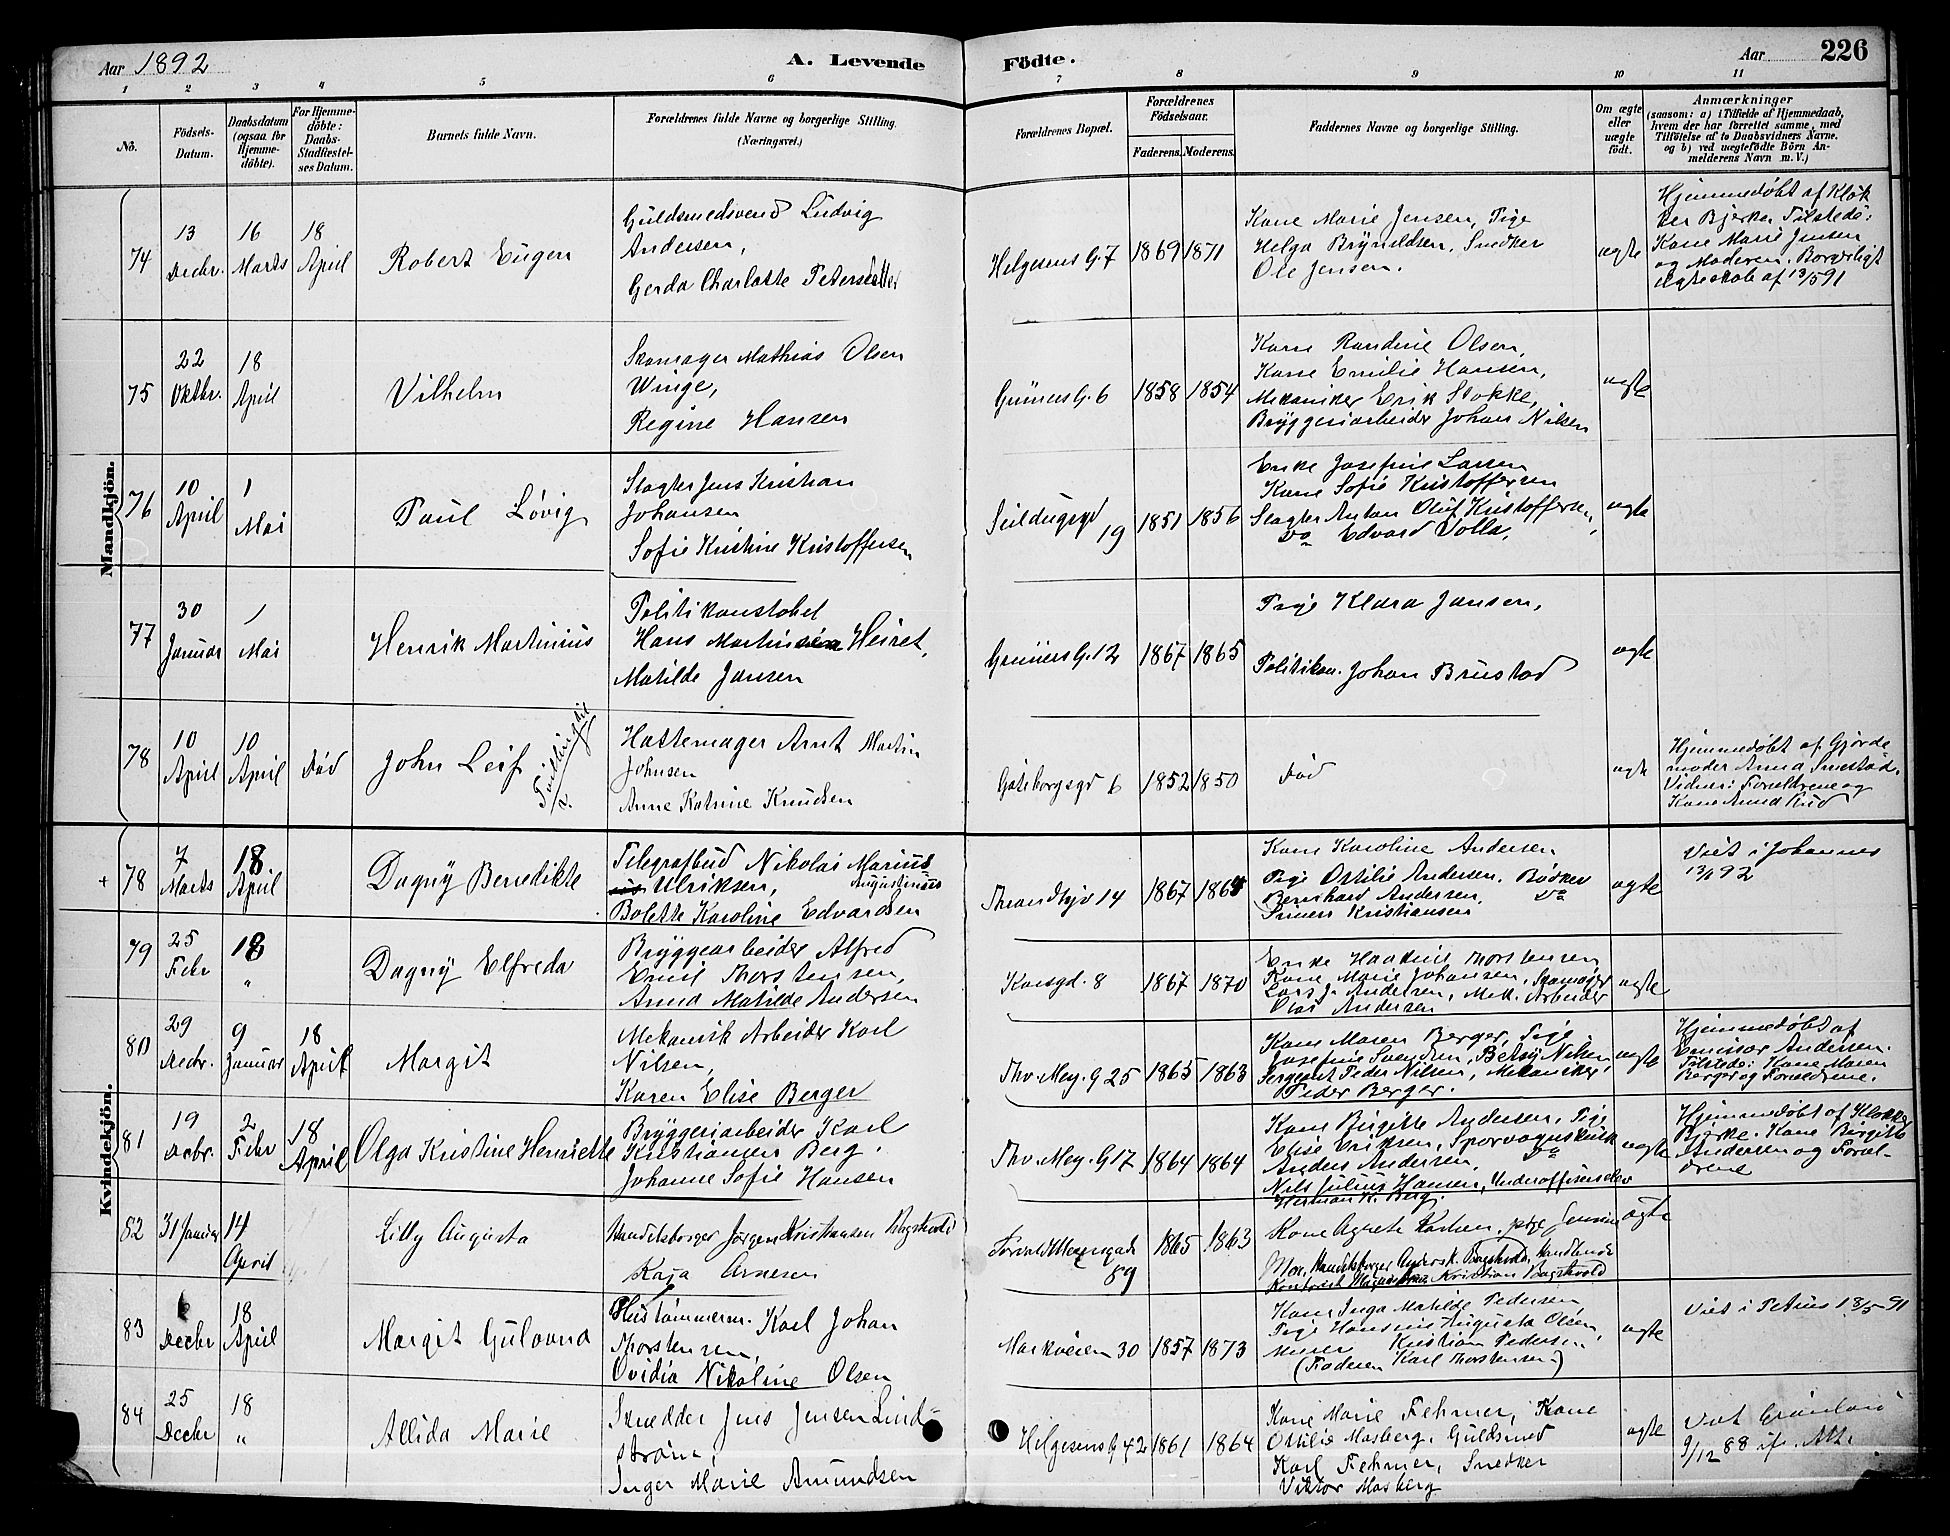 Aar 1892
A. Levende Födte.
Aar 226
1 2 3 4 5 6 7 8 9 10 11
No.
Födsels-Datum.
Daabsdatum (ogsaa for Hjemmedöbte).
For Hjemmedöbte: Daabs-Stadfæstelses Datum.
Barnets fulde Navn.
Forældrenes fulde Navne og borgerlige Stilling.
(Næringsvei.)
Forældrenes Bopæl.
Forældrenes Födselsaar.
Faderens. Moderens.
Faddernes Navne og borgerlige Stilling.
Om ægte eller uægte födt.
Anmærkninger
(saasom: a) i Tilfælde af Hjemmedaab,
hvem der har forrettet samme, med
Tilföielse af to Daabsvidners Navne.
og b) ved uægtefödte Börn An-
melderens Navn m. V.)
Mandkjön.
74
13 Decbr.
16 Marts
18 April
Robert Eugen
Guldsmedsvend Ludvig
Andersen,
Gerda Charlotte Petersdatter
Helgesens G. 7
1869 1871
Kone Marie Jensen, Pige
Helga Brynildsen, Snedker
Ole Jensen.
ægte
Hjemmedøbt af Klok
ker Bjerke. Tilstede:
Kone Marie Jensen
og Moderen. Borgerligt
ægteskab af 13/5 91
75
22 Oktbr.
18 April
Vilhelm
Skomager Mathias Olsen
Winge,
Regine Hansen
Grüners G. 6
1858 1854
Kone Randine Olsen,
Kone Emilie Hansen,
Mekaniker Erik Stokke,
Bryggeriarbeider Johan Nilsen
ægte
76
10 April
1 Mai
Paul Løvig
Slagter Jens Kristian
Johansen
Sofie Kristine Kristoffersen
19
1851 1856
Enke Josefine Larsen
Kone Sofie Kristoffersen
Slagter Anton Oluf Kristoffersen,
Do Edvard Volla,
ægte
77
30 Januar
1 Mai
Henrik Martinius
Politikonstabel
Hans Martinsen Heiret,
Matilde Jansen
Grüners G. 12
1867 1865
Pige Klara Jansen,
Politikon. Johan Brustad
ægte
78
10 April
10 April
Død
John Leif
Tvilling til
Hattemager Arnt Martin
Johnsen
Anne Katrine Knudsen
Gøteborgsgd 6
1852 1850
Død
ægte
Hjemmedøbt af Gjorde
moder Anna Smestad.
Vidner: Forældrene og
Kone Anna Ruud
Kvindekjön.
+ 78
7 Marts
18 April
Dagny Benedikte
Telegrafbud Nikolai Marius
Augustinius
Ulriksen,
Bolette Karoline Edvardsen
Throndhjv 14
1867 1864
Kone Karoline Andersen
Pige Ottilie Andersen, Bødker
Bernhard Andersen, Do
Kristiansen
ægte
Viet i Johannes
13/1 92
79
25 Febr
18 "
Dagny Elfreda
Bryggearbeider Alfred
Emil Thorstensen,
Anna Matilde Andersen
Korsgd. 8
1867 1870
Enke Haakine Thorstensen
Kone Marie Johansen, Skomager
Lars J. Andersen, Mek. Arbeider
Olai Andersen
ægte
80
29 Decbr.
9 Januar
18 April
Margit
Mekanisk Arbeider Karl
Nilsen,
Karen Elise Berger
Thv. Mey. G 25
1865 1863
Kone Maren Berger, Pige
Josefine Svendsen, Betsy Nilsen,
Sergeant Peder Nilsen, Mekaniker
Peder Berger.
ægte
Hjemmedøbt af
Emissær Andersen.
Tilstede: Kone Maren
Berger og Forældrene.
81
19 Decbr.
2 Febr
18 April
Olga Kristine Henriette
Bryggeriarbeider Karl
Kristiansen Berg.
Johanne Sofie Hansen
Thv. Mey. G 17
1864 1864
Kone Birgitte Andersen, Pige
Elise Eriksen, Sporvognskusk
Anders Andersen, Do
Nils Julius Hansen, Underofficerselev
Herman K. Berg.
ægte
Hjemmedøbt af Klokker
Bjerke. Kone Birgitte
Andersen og Foræl-
drene
82
31 Januar
14 April
Lilly Augusta
Handelsborger Jørgen Kristiansen Bagstevold
Kaja Arnesen
Torvald Meyersgade
89
1865 1863
Kone Agnete Karlsen, pige Jensine
Moe, Handelsborger Anders K. Bagstevold, Handlende
Kristian Bagstevold
ægte
83
Decbr
18 April
Margit Gulovna
Hustømmerm. Karl Johan
Thorstensen,
Ovidia Nikoline Olsen
Markveien 30
1857 1873
Kone Inga Matilde Pedersen
Pige Hansine Augusta Olsen,
Murer Kristian Pedersen
(Faderen Karl Thorstensen)
ægte
Viet i Petrus 18/5 91
84
25 Decbr
18 "
Allida Marie
Skrædder Jens Jensen Lind-
strøm,
Inger Marie Amundsen
Helgesens G 42
1861 1864
Kone Marie Fehmer, Kone
Ottilie Masberg. Guldsmed
Karl Fehmer, Snedker
Viktor Masberg
ægte
Viet Grønland
9/12 88 if. Att.